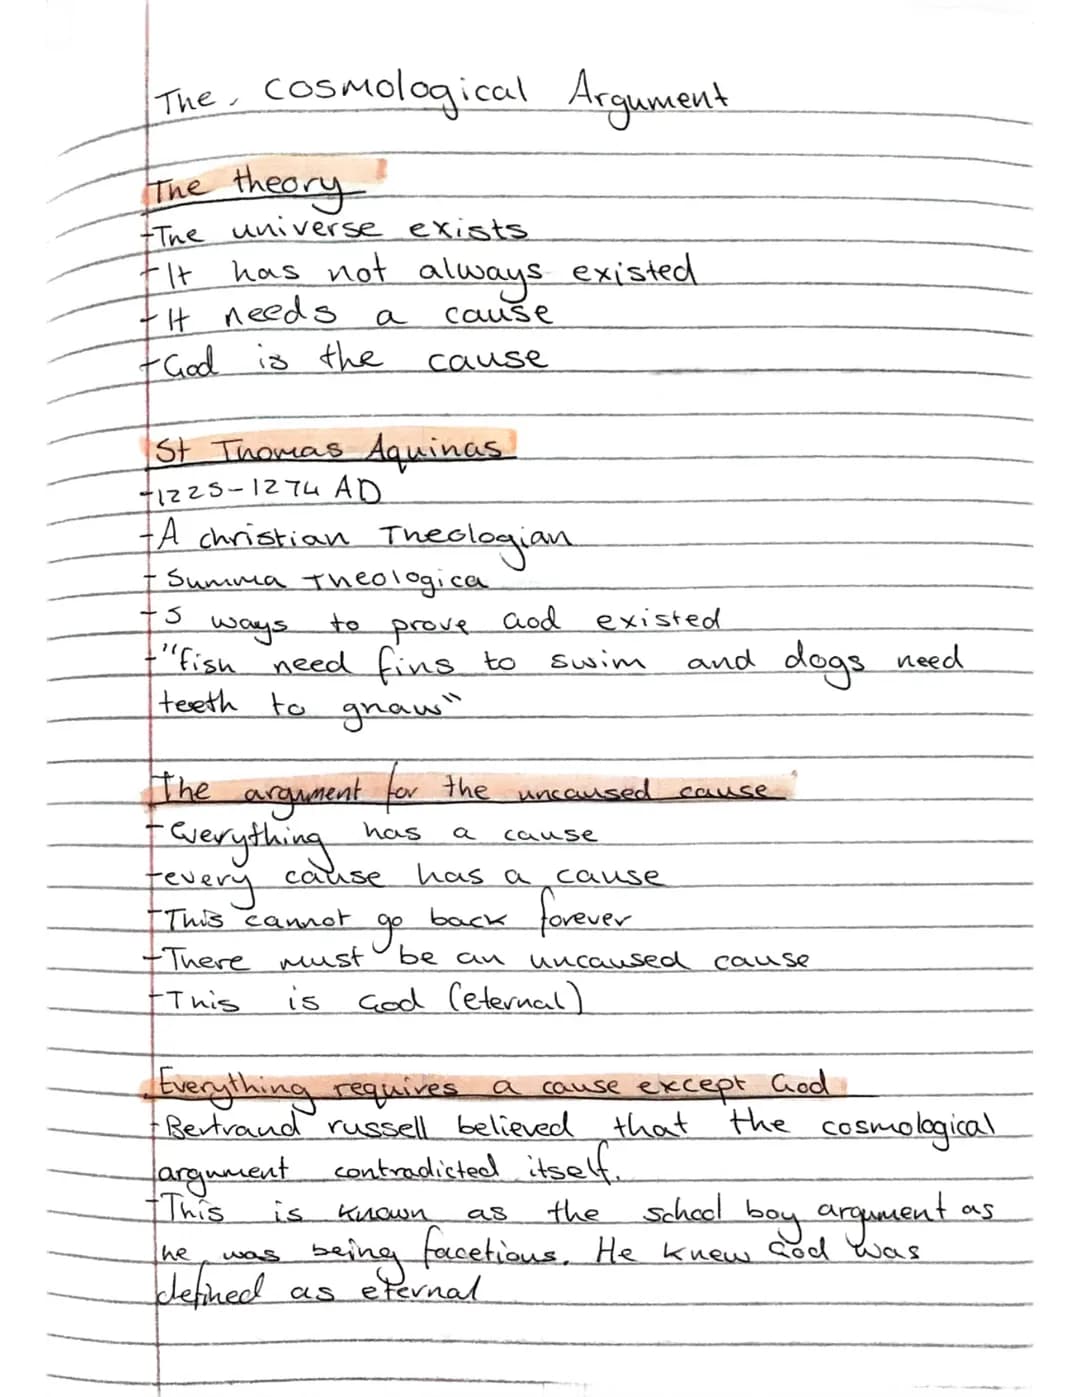 The cosmological Argument
The theory
-The universe exists
-It has not always existed
-It needs a cause
-God is the cause
St Thomas Aquinas
-1225-1274 AD
-A christian Theologian
-Summa Theologica
-5 ways to prove God existed
-"fish need fins to swim and dogs need
teeth to gnaw"
The argument for the uncaused cause
-Everything has a cause
-every cause has a cause
-This cannot go back forever
-There must be an uncaused cause
-This is God (eternal)
Everything requires a cause except God
-Bertrand russell believed that the cosmological
argument contradicted itself.
-This is known as the school boy argument as
he was being facetious. He knew God was
defined as eternal